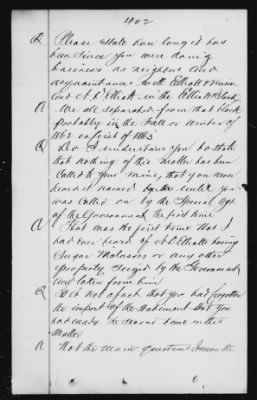 1402
Q Please state how long it has
been since you were doing
business as neighbors and
acquaintances with Elliott &
and A. C. Elliott in the Elliott Block
A We all separated from that block
probably in the Fall or Winter of
1862 or first of 1863
Q Do I understand you to state
that nothing of this matter has been
called to your mind, that you never
heard it named by until you
was called on by the Special Agt
of the Government the first time
A That was the first time that I
had ever heard of A C Elliott having
Sugar Molasses or any other
property seized by the Government
or taken from him
Q Is it not a fact that you had forgotten
the import of the statement that you
had made the second time in this
matter
A Not the main question I mean the